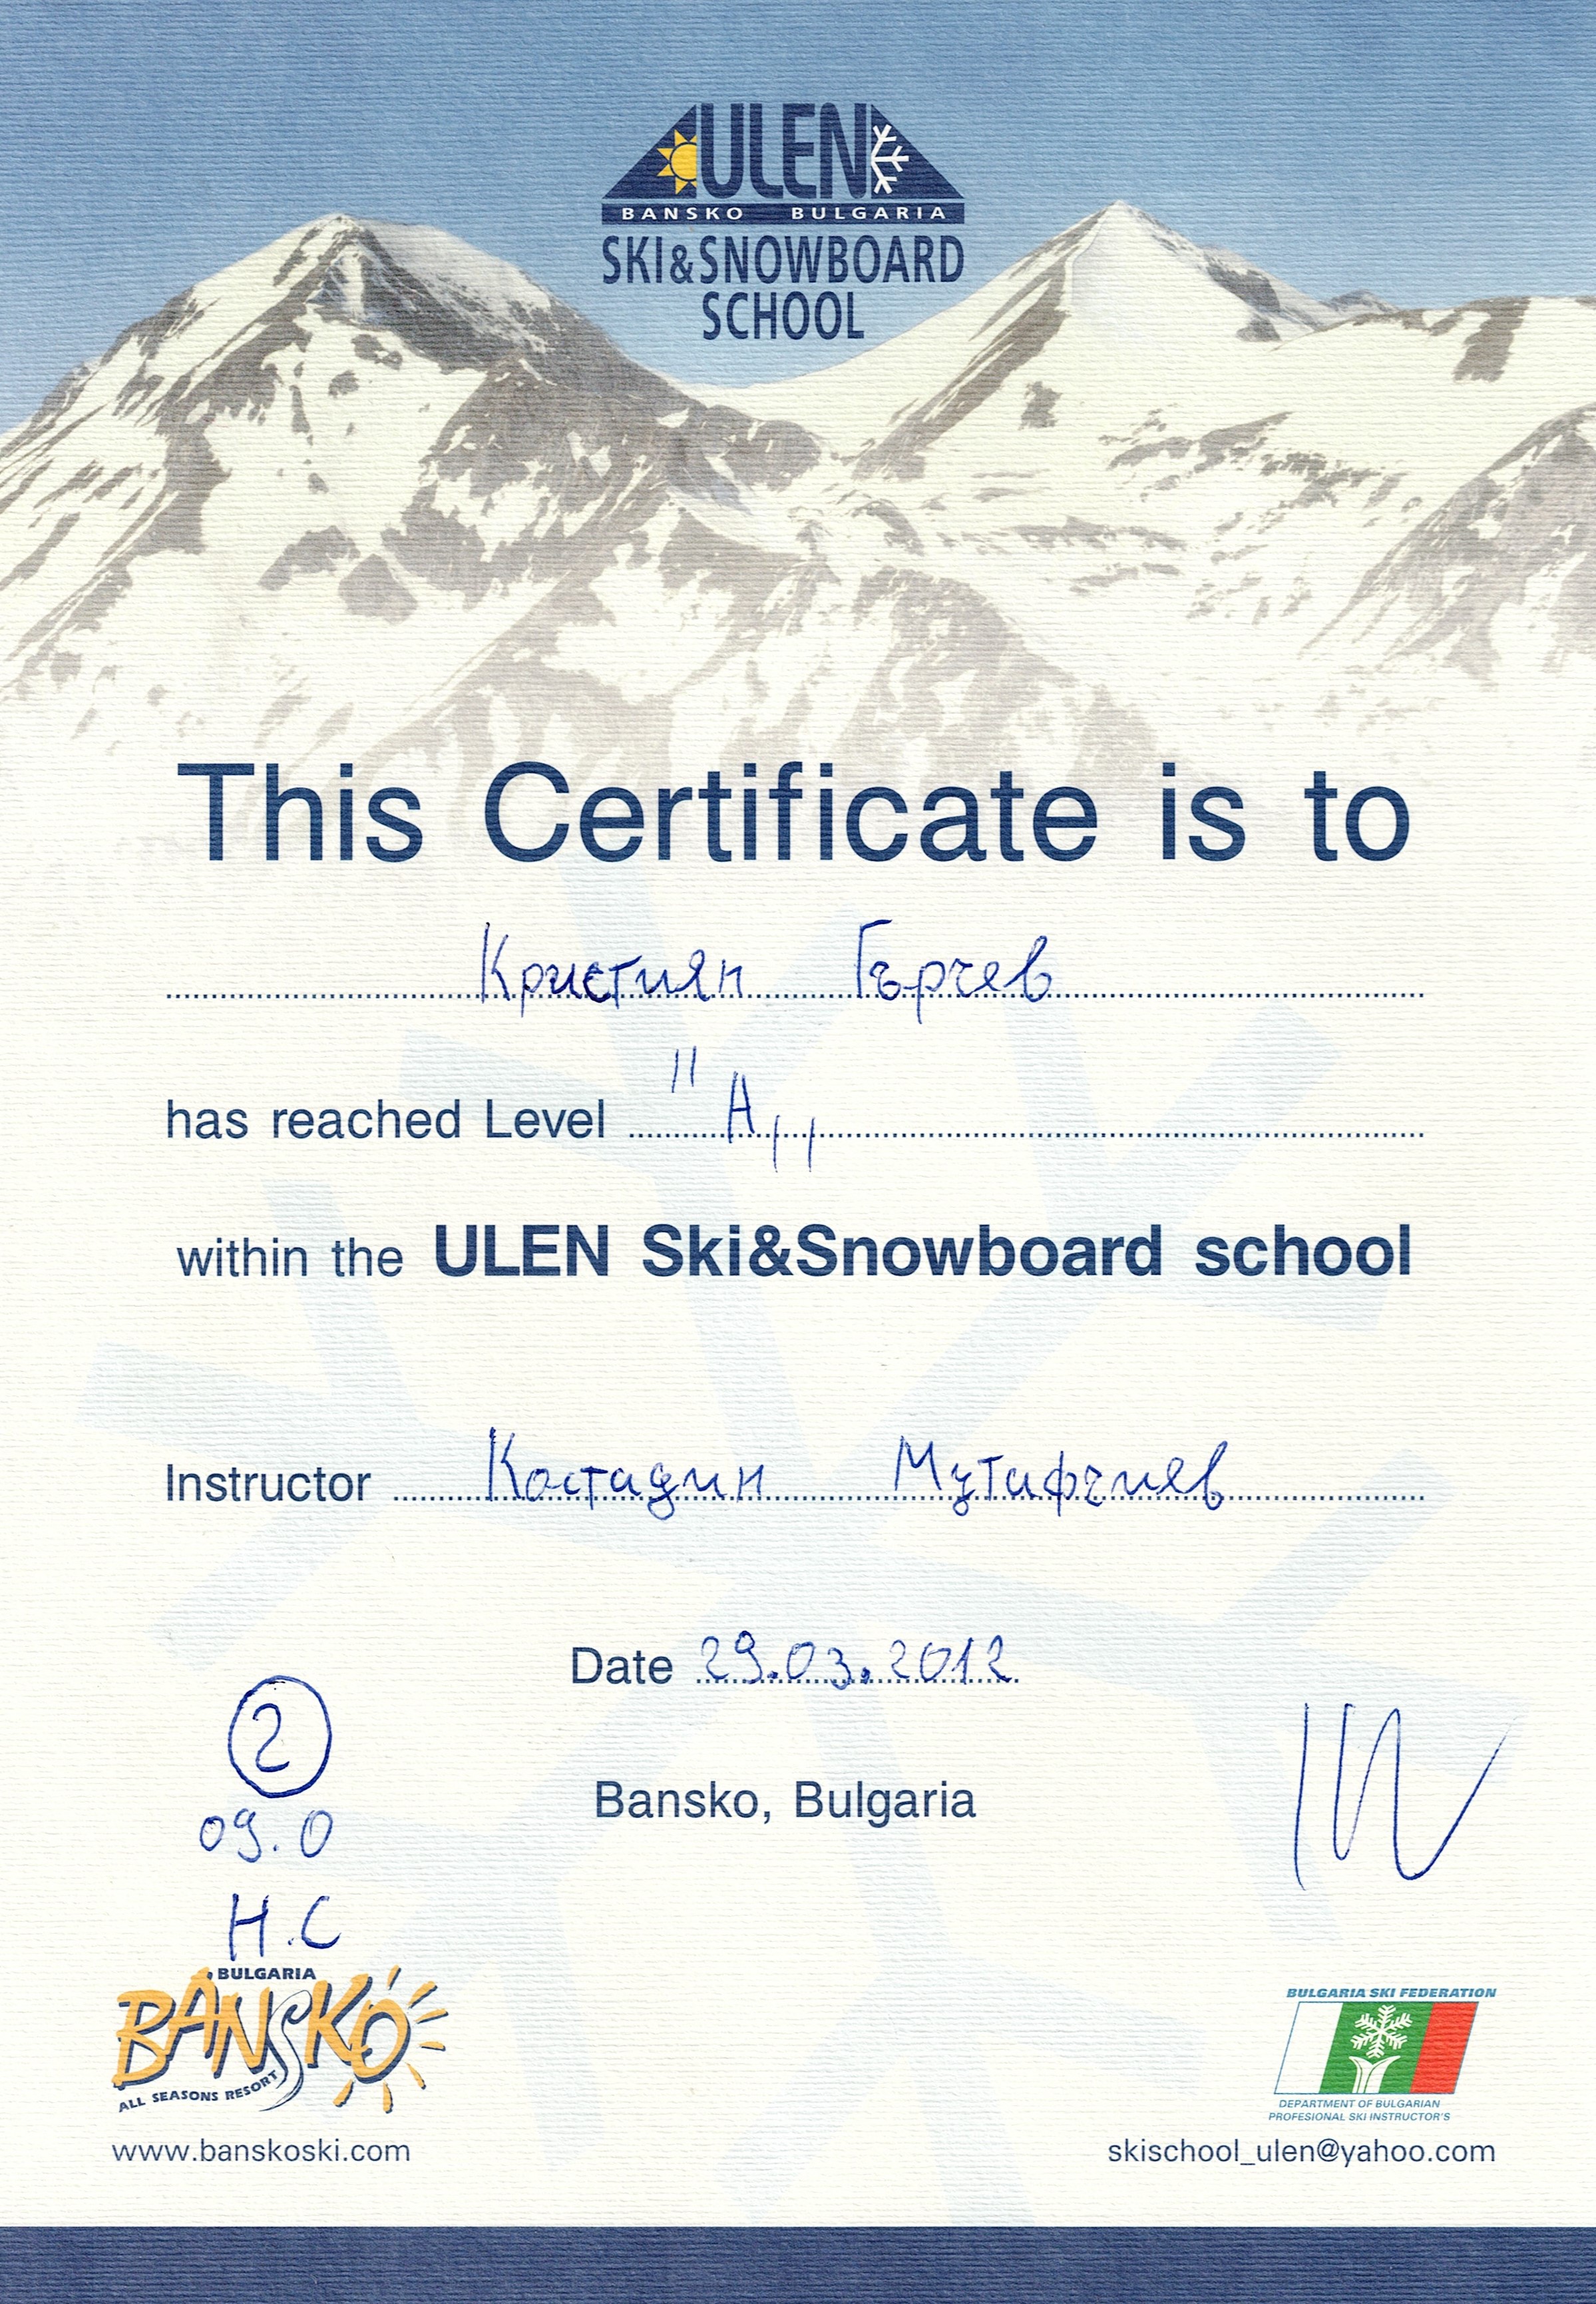 ULEN
BANSKO BULGARIA
SKI&SNOWBOARD
SCHOOL
This Certificate is to
Кристиян Гърчев
has reached Level "А„
within the ULEN Ski&Snowboard school
Instructor Костадин Мутафчиев
Date 29.03.2012
2
09.0
Bansko, Bulgaria
H.C
BULGARIA
BANSKO
ALL SEASONS RESORT
www.banskoski.com
BULGARIA SKI FEDERATION
DEPARTMENT OF BULGARIAN
PROFESIONAL SKI INSTRUCTOR'S
skischool_ulen@yahoo.com